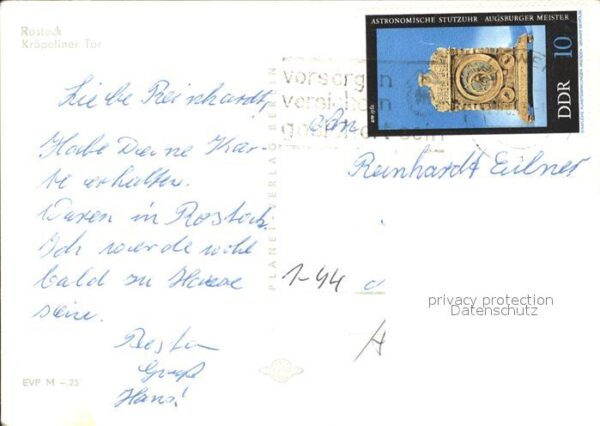 Rostock
Kröpeliner Tor
ASTRONOMISCHE STUTZUHR · AUGSBURGER MEISTER
DDR 10
vorsorgen
versichern
gesichert sein
Liebe Reinhardt,
Habe Deine Kar-
te erhalten.
Waren in Rostock.
Ich werde wohl
bald zu Hause
sein.
Besten
Gruß
Hans!
An
Reinhardt Eilner
1-44 a
A
PLANET-VERLAG BERLIN
privacy protection
Datenschutz
EVP M -.25